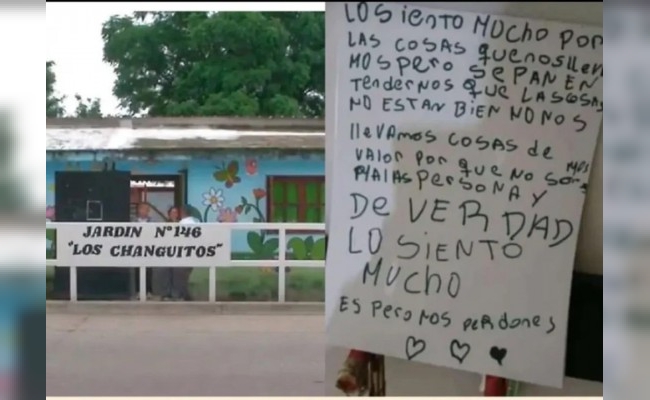 JARDIN N°146
"LOS CHANGUITOS"
LO SIENTO MUCHO POR
LAS COSAS QUE NOS LLEVA
MOS PERO SEPAN EN
TENDERNOS QUE LAS COSAS
NO ESTAN BIEN NO NOS
llEVAMOS COSAS DE
VALOR POR QUE NO SOMOS
MALAS PERSONA Y
DE VERDAD
LO SIENTO
MUCHO
ES PERO NOS PERDONES